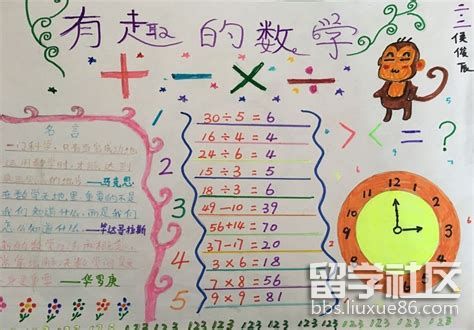 有趣的数学
二二 侯俊辰
+ - × ÷
> < = ?
名言
一门科学，只有当它成功地
运用数学时，才能达到
——马克思
在数学天地里，重要的不是
我们知道什么，而是我们
怎么知道什么。
——毕达哥拉斯
——华罗庚
1
2
3
4
5
30÷5=6
16÷4=4
24÷6=4
15÷3=5
18÷3=6
49-10=39
56+14=70
37-17=20
3×6=18
9×9=81
12
1
2
3
4
5
6
7
8
9
10
11
123 123 123 123 123 123 123 123
留学社区
bbs.liuxue86.com